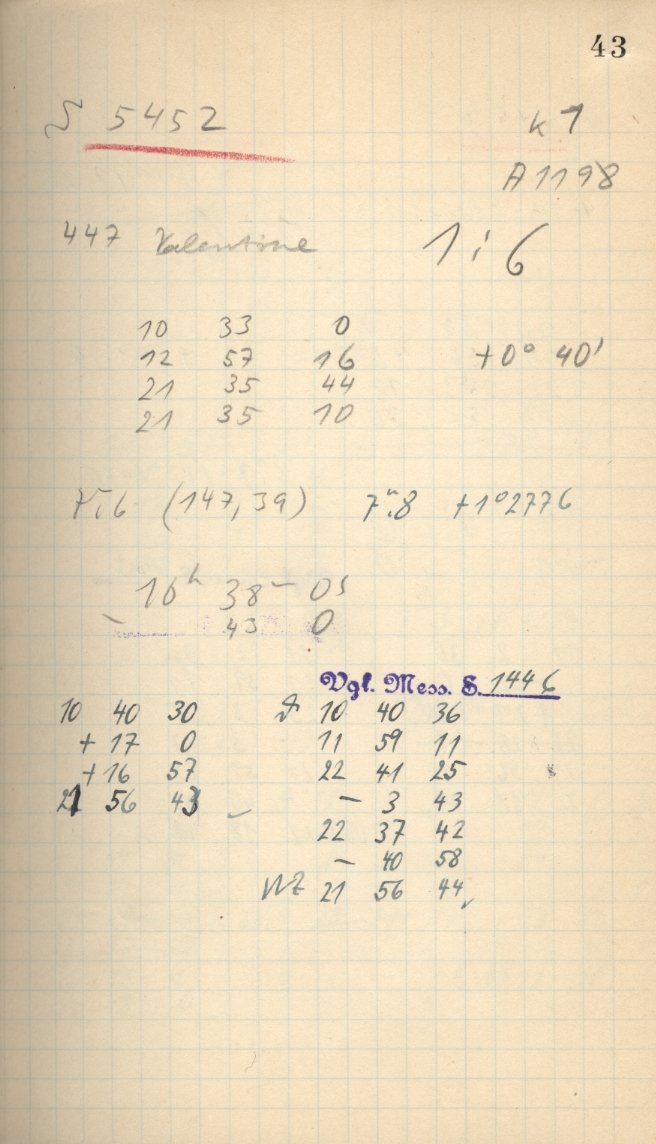 43
S 5452
k 1
A 1198
447 Valentine 1:6
10 33 0
12 57 16 +0° 40'
21 35 44
21 35 10
(147,39) 7m.8 +1°2776
10h 38m 0s
43 0
Vgl. Mess. S. 1446
10 40 30 10 40 36
+ 17 0 11 59 11
+ 16 57 22 41 25
21 56 43 – 3 43
22 37 42
– 40 58
WZ 21 56 44